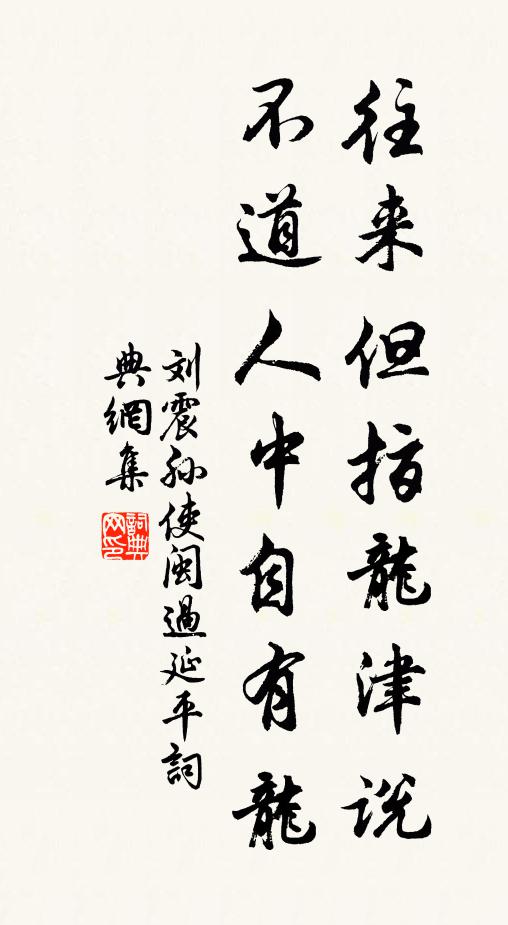 往来但指龍津説
不道人中自有龍
刘震孙使閩過延平詞
典網集
詞典
网印